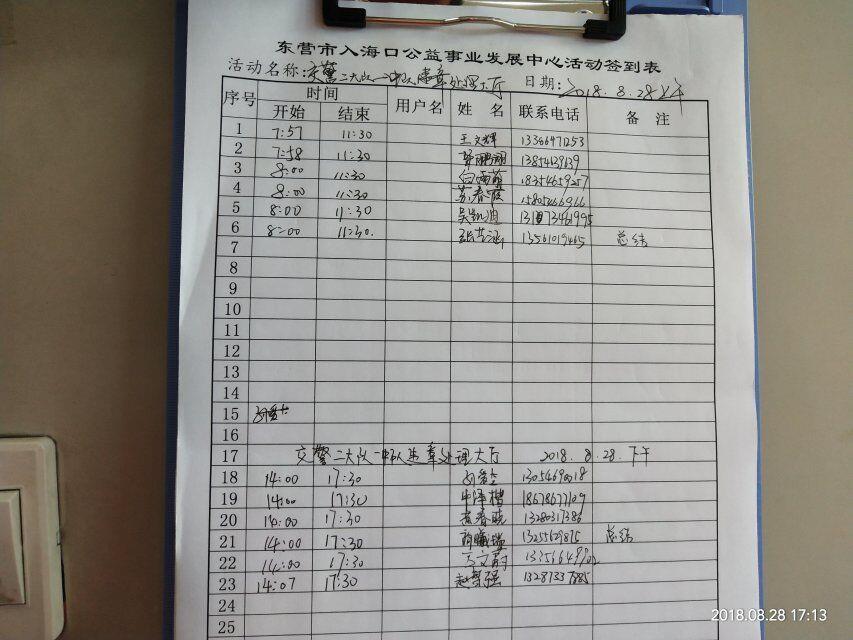 东营市入海口公益事业发展中心活动签到表
活动名称:交警二大队一中队违章处理大厅 日期:2018.8.28上午
序号 时间 用户名 姓 名 联系电话 备 注
开始 结束
1 7:57 11:30 王文辉 13366471253
2 7:58 11:30 13854139139
3 8:00 11:30 白雨萌 18354659257
4 8:00 11:30 苏春霞 15805466966
5 8:00 11:30 吴凯迪
6 8:00 11:30. 13561019465 总结
7
8
9
10
11
12
13
14
15
16
17 交警二大队一中队违章处理大厅 2018.8.28.下午
18 14:00 17:30
19 14:00 17:30 牛泽楷 18678677109
20 14:00 17:30 13280317386
21 14:00 17:30 13255629875 总结
22 14:00 17:30
23 14:07 17:30 13287337885
24
25
2018.08.28 17:13